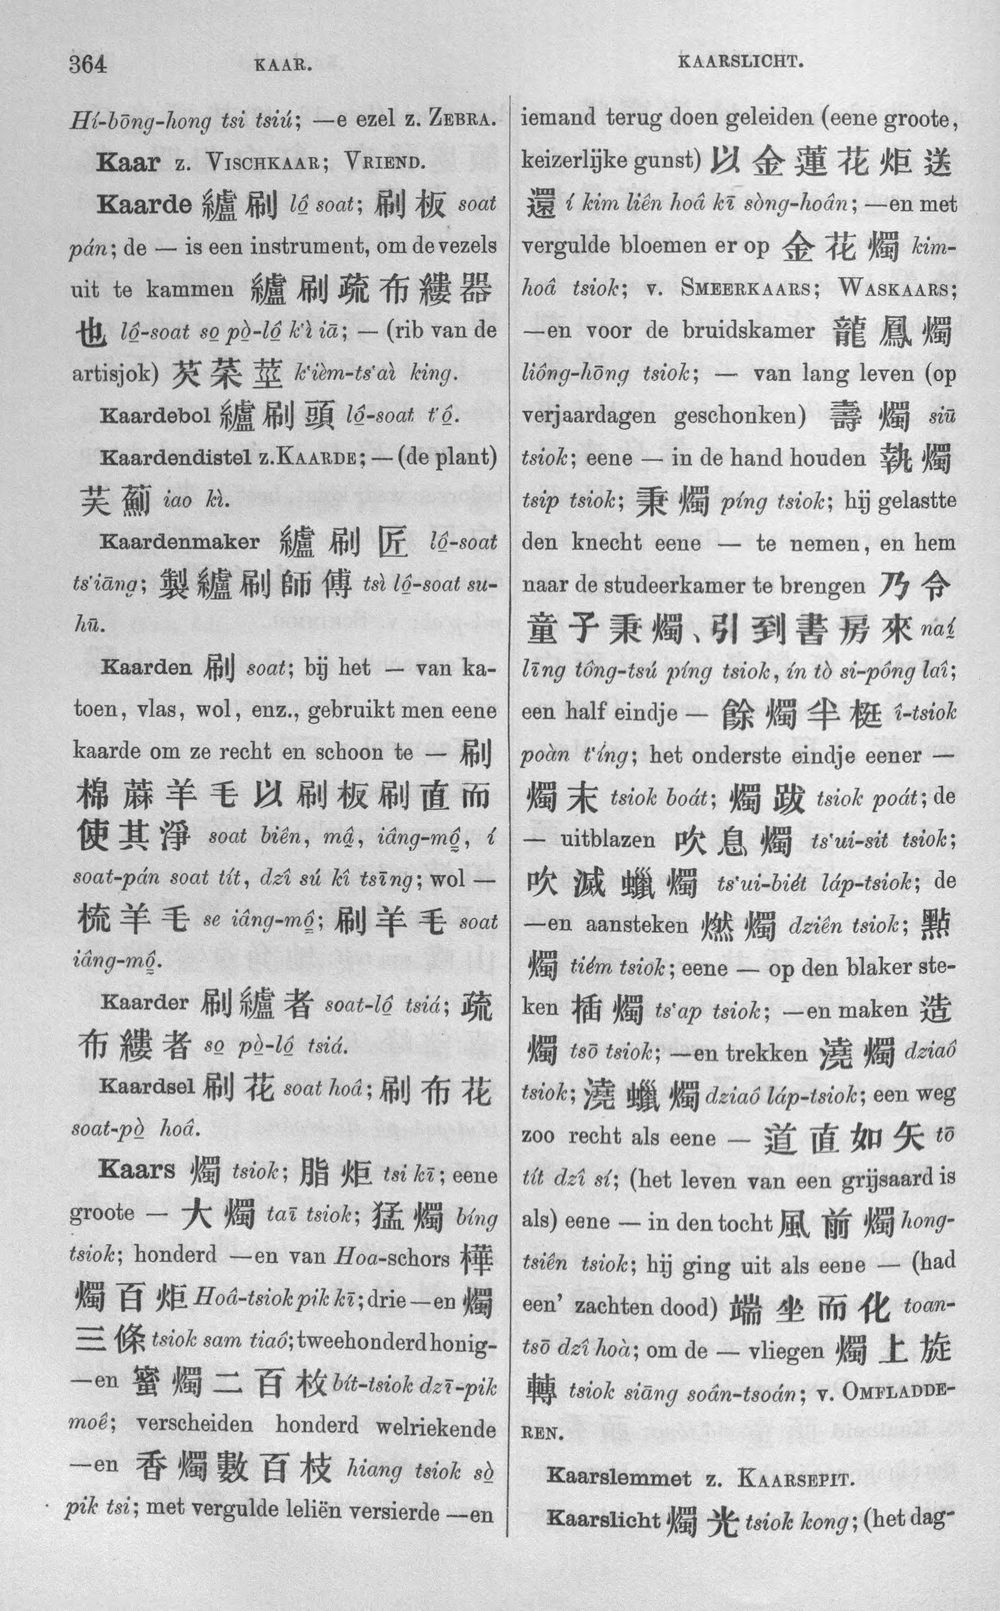 364
KAAR.
KAARSLICHT.
Hí-bōng-hong tsi tsiú; —e ezel z. ZEBRA.
Kaar z. VISCHKAAR; VRIEND.
Kaarde 纑刷 lô̤ soat; 刷板 soat
pán; de — is een instrument, om de vezels
uit te kammen 纑刷疏布縷器
也 lô̤-soat so̤ pò̤-ló̤ k'ì iā; — (rib van de
artisjok) 芡菜莖 k'ièm-ts'aì king.
Kaardebol 纑刷頭 lô̤-soat t'ô̤.
Kaardendistel z. KAARDE; — (de plant)
芺薊 iao kì.
Kaardenmaker 纑刷匠 lô̤-soat
ts'iāng; 製纑刷師傅 tsì lô̤-soat su-
hū.
Kaarden 刷 soat; bij het — van ka-
toen, vlas, wol, enz., gebruikt men eene
kaarde om ze recht en schoon te — 刷
棉蔴羊毛以刷板刷直而
使其淨 soat biên, mâ̤, iâng-mô̤, í
soat-pán soat tít, dzî sú kî tsīng; wol —
梳羊毛 se iâng-mô̤; 刷羊毛 soat
iâng-mô̤.
Kaarder 刷纑者 soat-lô̤ tsiá; 疏
布縷者 so̤ pò̤-ló̤ tsiá.
Kaardsel 刷花 soat hoâ; 刷布花
soat-pò̤ hoâ.
Kaars 燭 tsiok; 脂炬 tsi kī; eene
groote — 大燭 taī tsiok; 猛燭 bíng
tsiok; honderd —en van Hoa-schors 樺
燭百炬 Hoâ-tsiok pik kī; drie —en 燭
三條 tsiok sam tiaô; tweehonderd honig-
—en 蜜燭二百枚 bít-tsiok dzī-pik
moê; verscheiden honderd welriekende
—en 香燭數百枝 hiang tsiok sò̤
pik tsi; met vergulde leliën versierde —en
iemand terug doen geleiden (eene groote,
keizerlijke gunst) 以金蓮花炬送
還 í kim liên hoâ kī sòng-hoân; —en met
vergulde bloemen er op 金花燭 kim-
hoâ tsiok; v. SMEERKAARS; WASKAARS;
—en voor de bruidskamer 龍鳳燭
liông-hōng tsiok; — van lang leven (op
verjaardagen geschonken) 壽燭 siū
tsiok; eene — in de hand houden 執燭
tsip tsiok; 秉燭 píng tsiok; hij gelastte
den knecht eene — te nemen, en hem
naar de studeerkamer te brengen 乃令
童子秉燭、引到書房來 naí
līng tông-tsú píng tsiok, ín tò si-pông laî;
een half eindje — 餘燭半梃 î-tsiok
poàn t'íng; het onderste eindje eener —
燭末 tsiok boát; 燭跋 tsiok poát; de
— uitblazen 吹息燭 ts'ui-sit tsiok;
吹滅蠟燭 ts'ui-biét láp-tsiok; de
—en aansteken 燃燭 dziên tsiok; 點
燭 tiém tsiok; eene — op den blaker ste-
ken 插燭 ts'ap tsiok; —en maken 造
燭 tsō tsiok; —en trekken 澆燭 dziaô
tsiok; 澆蠟燭 dziaô láp-tsiok; een weg
zoo recht als eene — 道直如矢 tō
tít dzî sí; (het leven van een grijsaard is
als) eene — in den tocht 風前燭 hong-
tsiên tsiok; hij ging uit als eene — (had
een' zachten dood) 端坐而化 toan-
tsō dzî hoà; om de — vliegen 燭上旋
轉 tsiok siāng soân-tsoán; v. OMFLADDE-
REN.
Kaarslemmet z. KAARSEPIT.
Kaarslicht 燭光 tsiok kong; (het dag-